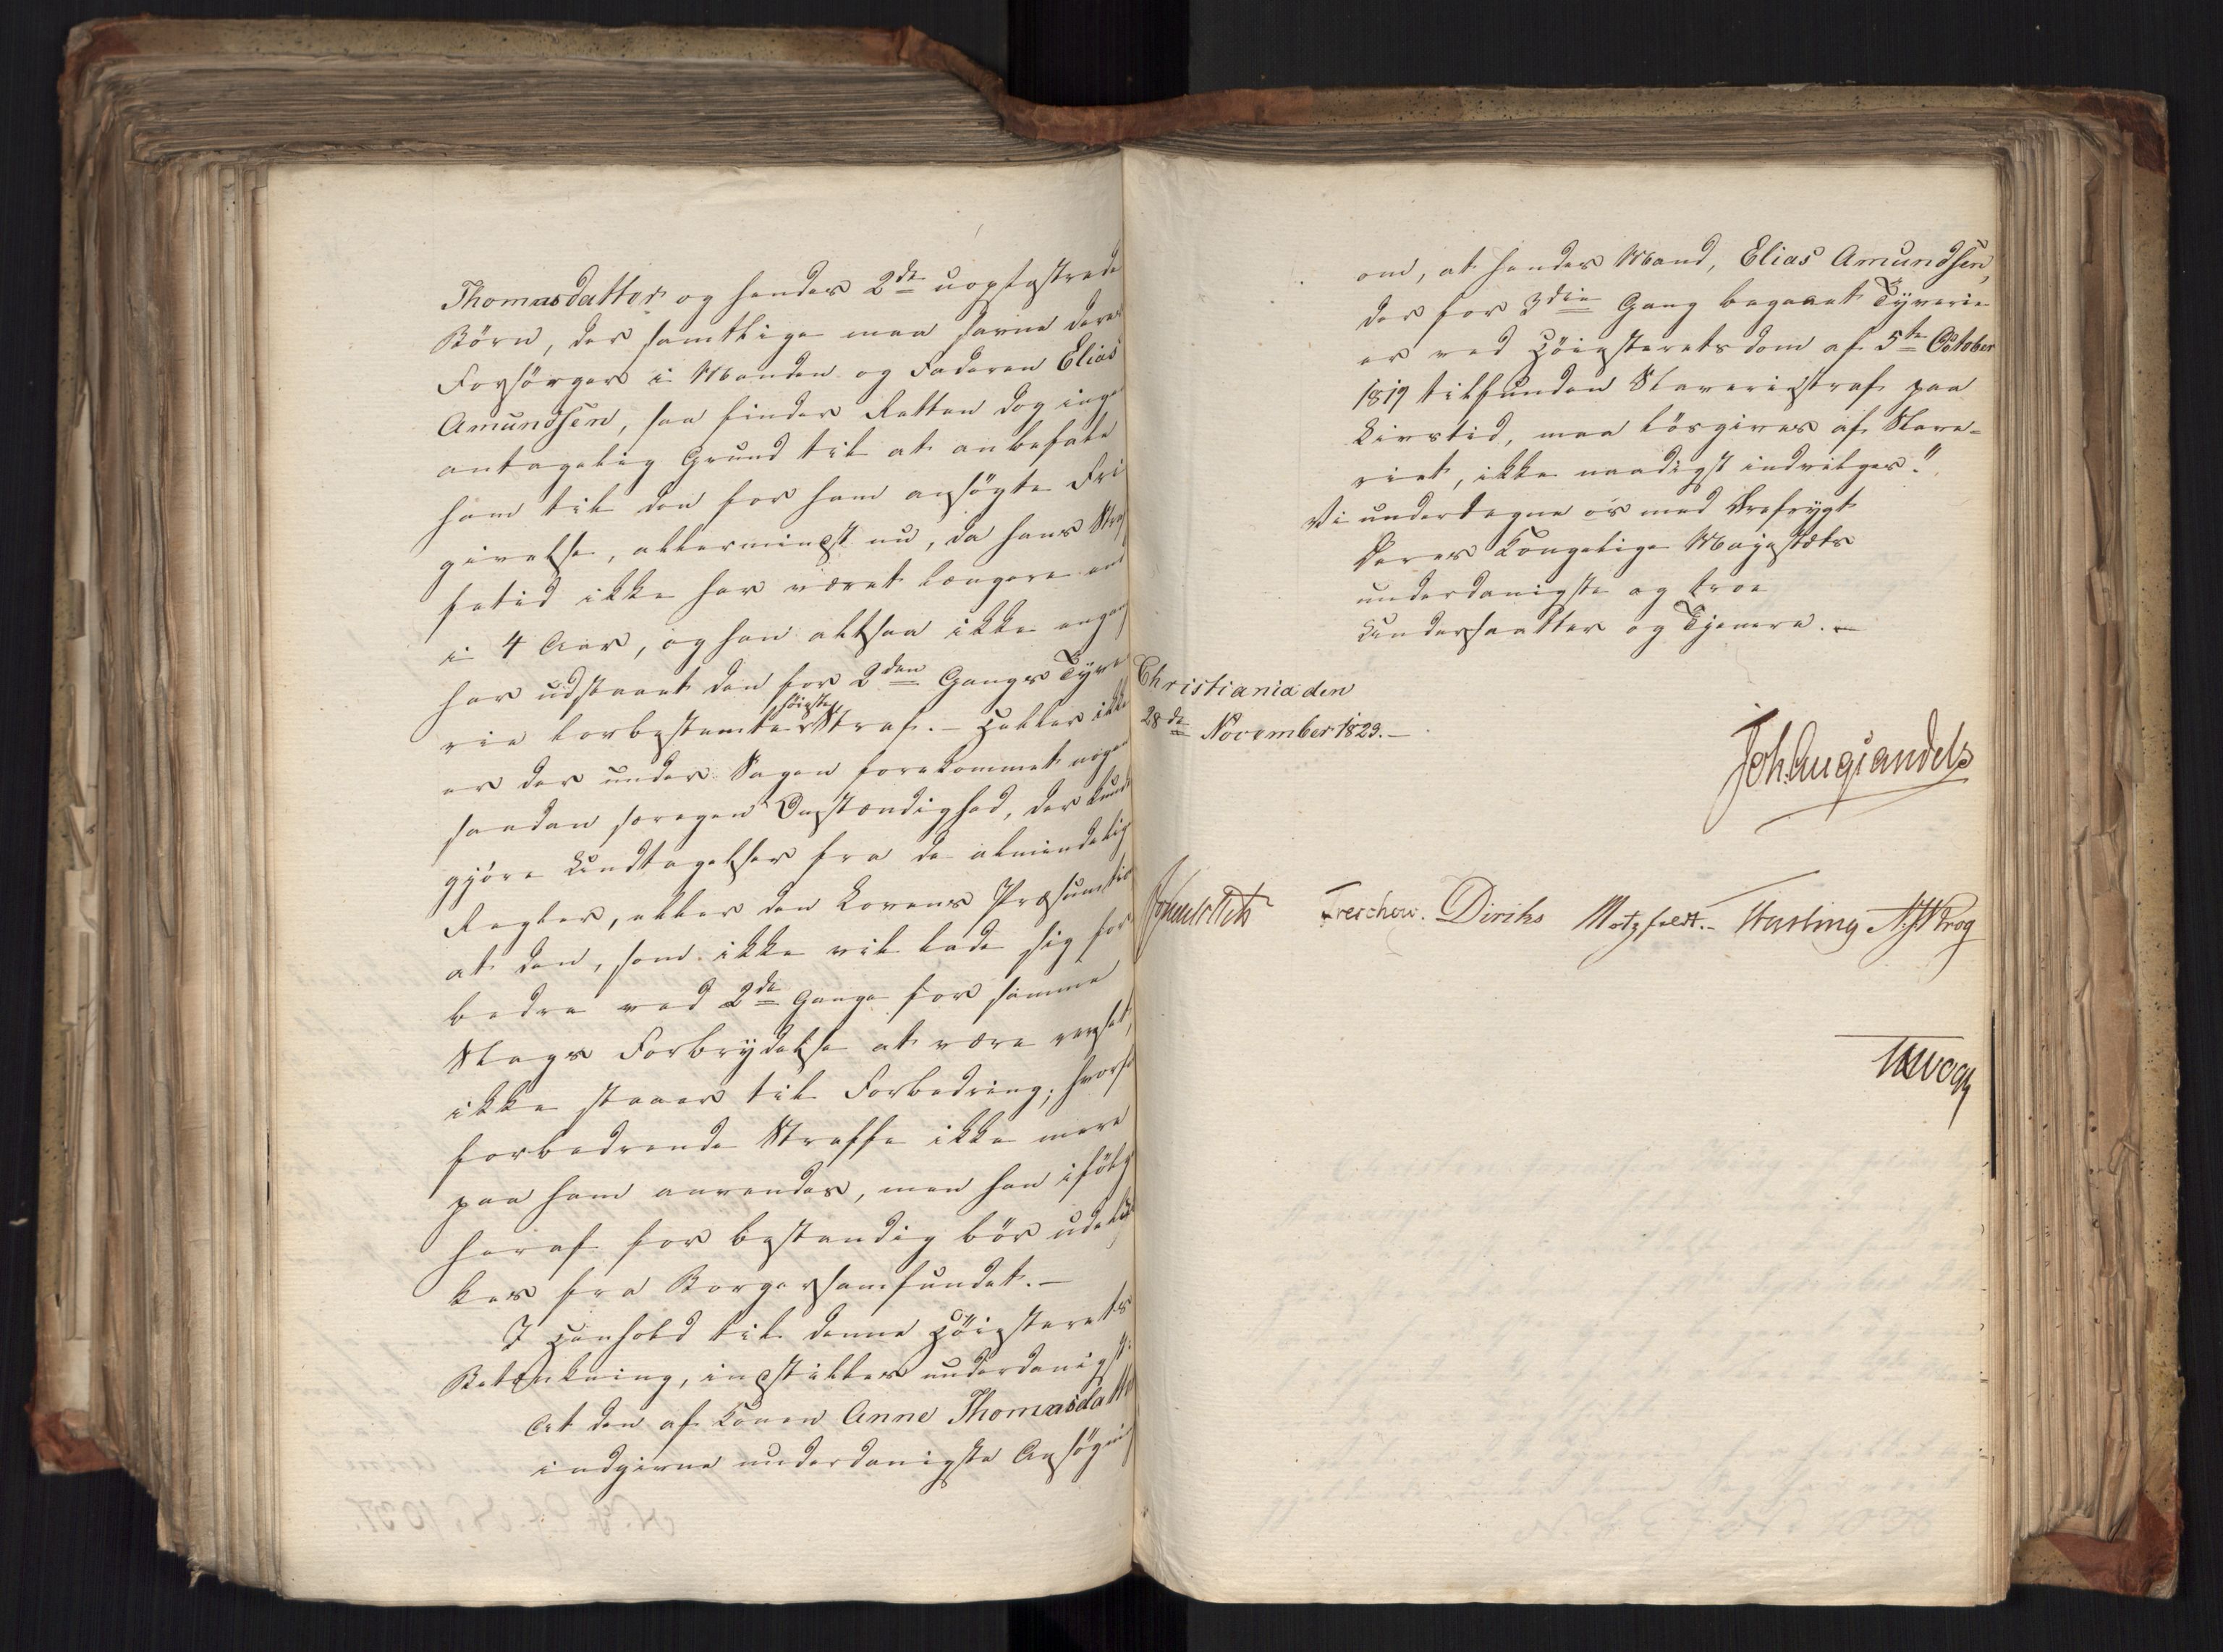 Thomasdatter og hendes 2de uopfostrede
Börn, der samtlige maa savne deres
Forsörger i Manden og Faderen Elias
Amundsen, saa finder Retten dog ingen
antagelig Grund til at anbefale
ham til den for ham ansögte Fri
givelse, allerminst nu, da hans Straf
fetid ikke har været længere end
i 4 Aar, og han altsaa ikke engang
har udstaaet den for 2den Gangs Tyve
rie lovbestemte höieste Straf. – Heller ikke
er der under Sagen forekommet nogen
saadan særegen Omstændighed, der kunde
gjöre Undtagelser fra de almindelige
Regler, eller den Lovens Præsumtion
at den, som ikke vil lade sig for
bedre ved 2de Gange for samme
Slags Forbrydelse at være revset,
ikke staaer til Forbedring; hvorfor
forbedrende Straffe ikke mere
paa ham anvendes, men han ifölge
heraf for bestandig bör udeluk
kes fra Borgersamfundet. –
I Henhold til denne Höiesterets
Betænkning, instilles underdanigst:
At den af Konen Anne Thomasdatter
indgivne underdanigste Ansögning
om, at hendes Mand, Elias Amundsen,
der for 3die Gang begaaet Tyverie
er ved Höiesteretsdom af 5te October
1819 tilfunden Slaveriestraf paa
Livstid, maa lösgives af Slave-
riet, ikke naadigst indvilges."
Vi undertegne os med Ærefrygt
Deres Kongelige Majestæts
underdanigste og troe
Undersaatter og Tjenere. –
Christiania den
28de November 1823. –
Joh. Aug Sandels
Treschow. Diriks Motzfeldt. – Fasting N. J. Krog
Vogt